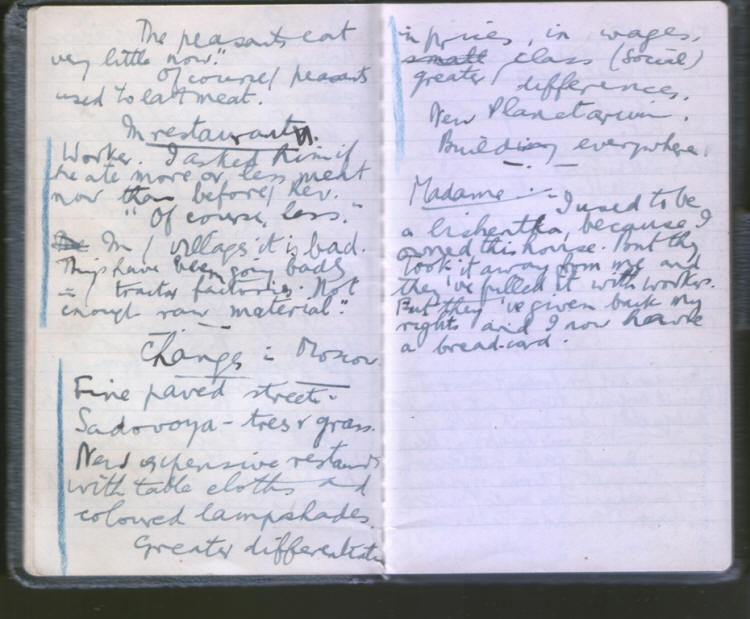 The peasants eat
very little now."
Of course / peasants
used to eat meat.
In restaurant.
Worker. I asked him if
he ate more or less meat
now than before / Rev.
"Of course, less."
In / village it is bad.
Things have been going badly
in tractor factories. Not
enough raw material".
Changes in Moscow.
Fine paved streets.
Sadovoya - trees & grass.
New expensive restaurants
with table cloths and
coloured lampshades.
Greater differentiation
in prices, in wages,
small class (social)
greater / differences.
New Planetarium.
Building everywhere.
Madame. I used to be
a lishentka, because I
owned this house. But they
took it away from me and
they've filled it with workers.
But they've given back my
rights and I now have
a bread-card.